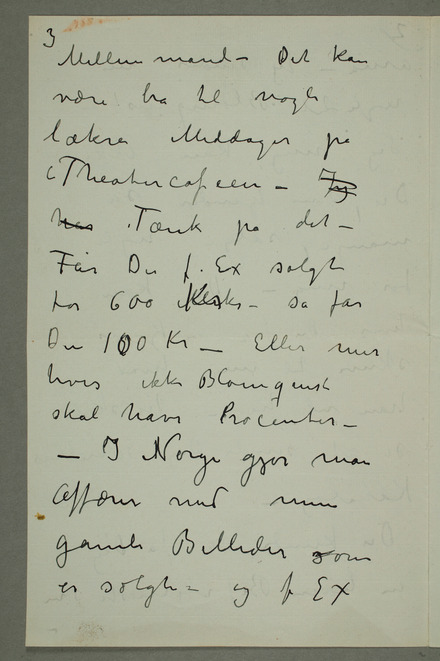 3
Mellemmand – Det kan
være bra til nogle
lækre Middager på
Theatercafeen – Jeg
har Tænk på det –
Får Du f. Ex solgt
for 600 Kr – så får
Du 100 Kr – Eller mer
hvis ikke Blomqvist
skal have Procenter –
– I Norge gjør man
Affærer med mine
gamle Billeder som
er solgte – og f Ex